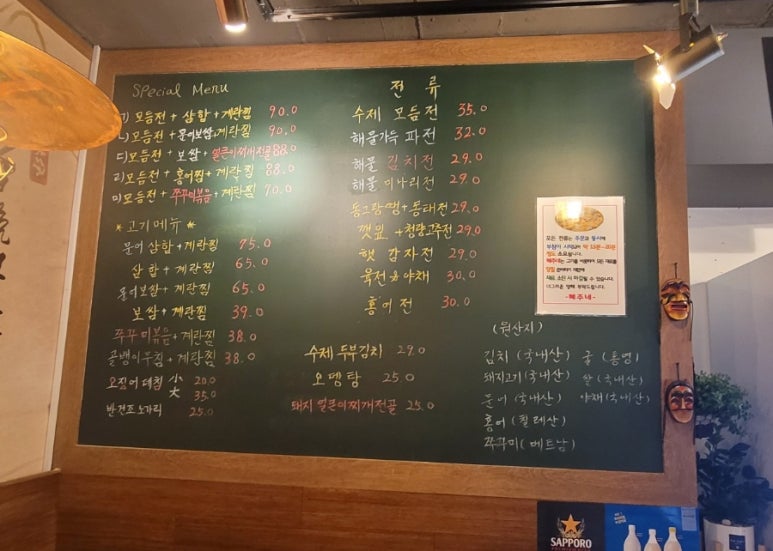 Special Menu
ㄱ) 모듬전 + 삼합 + 계란찜 90.0
ㄴ) 모듬전 + 문어보쌈+계란찜 90.0
ㄷ) 모듬전 + 보쌈 + 얼큰이찌개전골 88.0
ㄹ) 모듬전 + 홍어찜 + 계란찜 88.0
ㅁ) 모듬전 + 쭈꾸미볶음 + 계란찜 70.0
* 고기메뉴 *
문어삼합 + 계란찜 75.0
삼합 + 계란찜 65.0
문어보쌈 + 계란찜 65.0
보쌈 + 계란찜 39.0
쭈꾸미볶음 + 계란찜 38.0
골뱅이무침 + 계란찜 38.0
오징어데침 小 20.0
大 35.0
반건조노가리 25.0
전 류
수제 모듬전 35.0
해물가득 파전 32.0
해물 김치전 29.0
해물 미나리전 29.0
동그랑땡 + 동태전 29.0
깻잎 + 청량고추전 29.0
햇 감자전 29.0
육전&야채 30.0
홍어전 30.0
수제두부김치 29.0
오뎅탕 25.0
돼지얼큰이찌개전골 25.0
모든 전류는 주문과 동시에
부침이 시작되어 약 15분~20분
정도 소요됩니다.
-혜주네-
(원산지)
김치(국내산) 굴(통영)
돼지고기(국내산) 쌀(국내산)
문어(국내산) 야채(국내산)
홍어(칠레산)
쭈꾸미(베트남)
SAPPORO